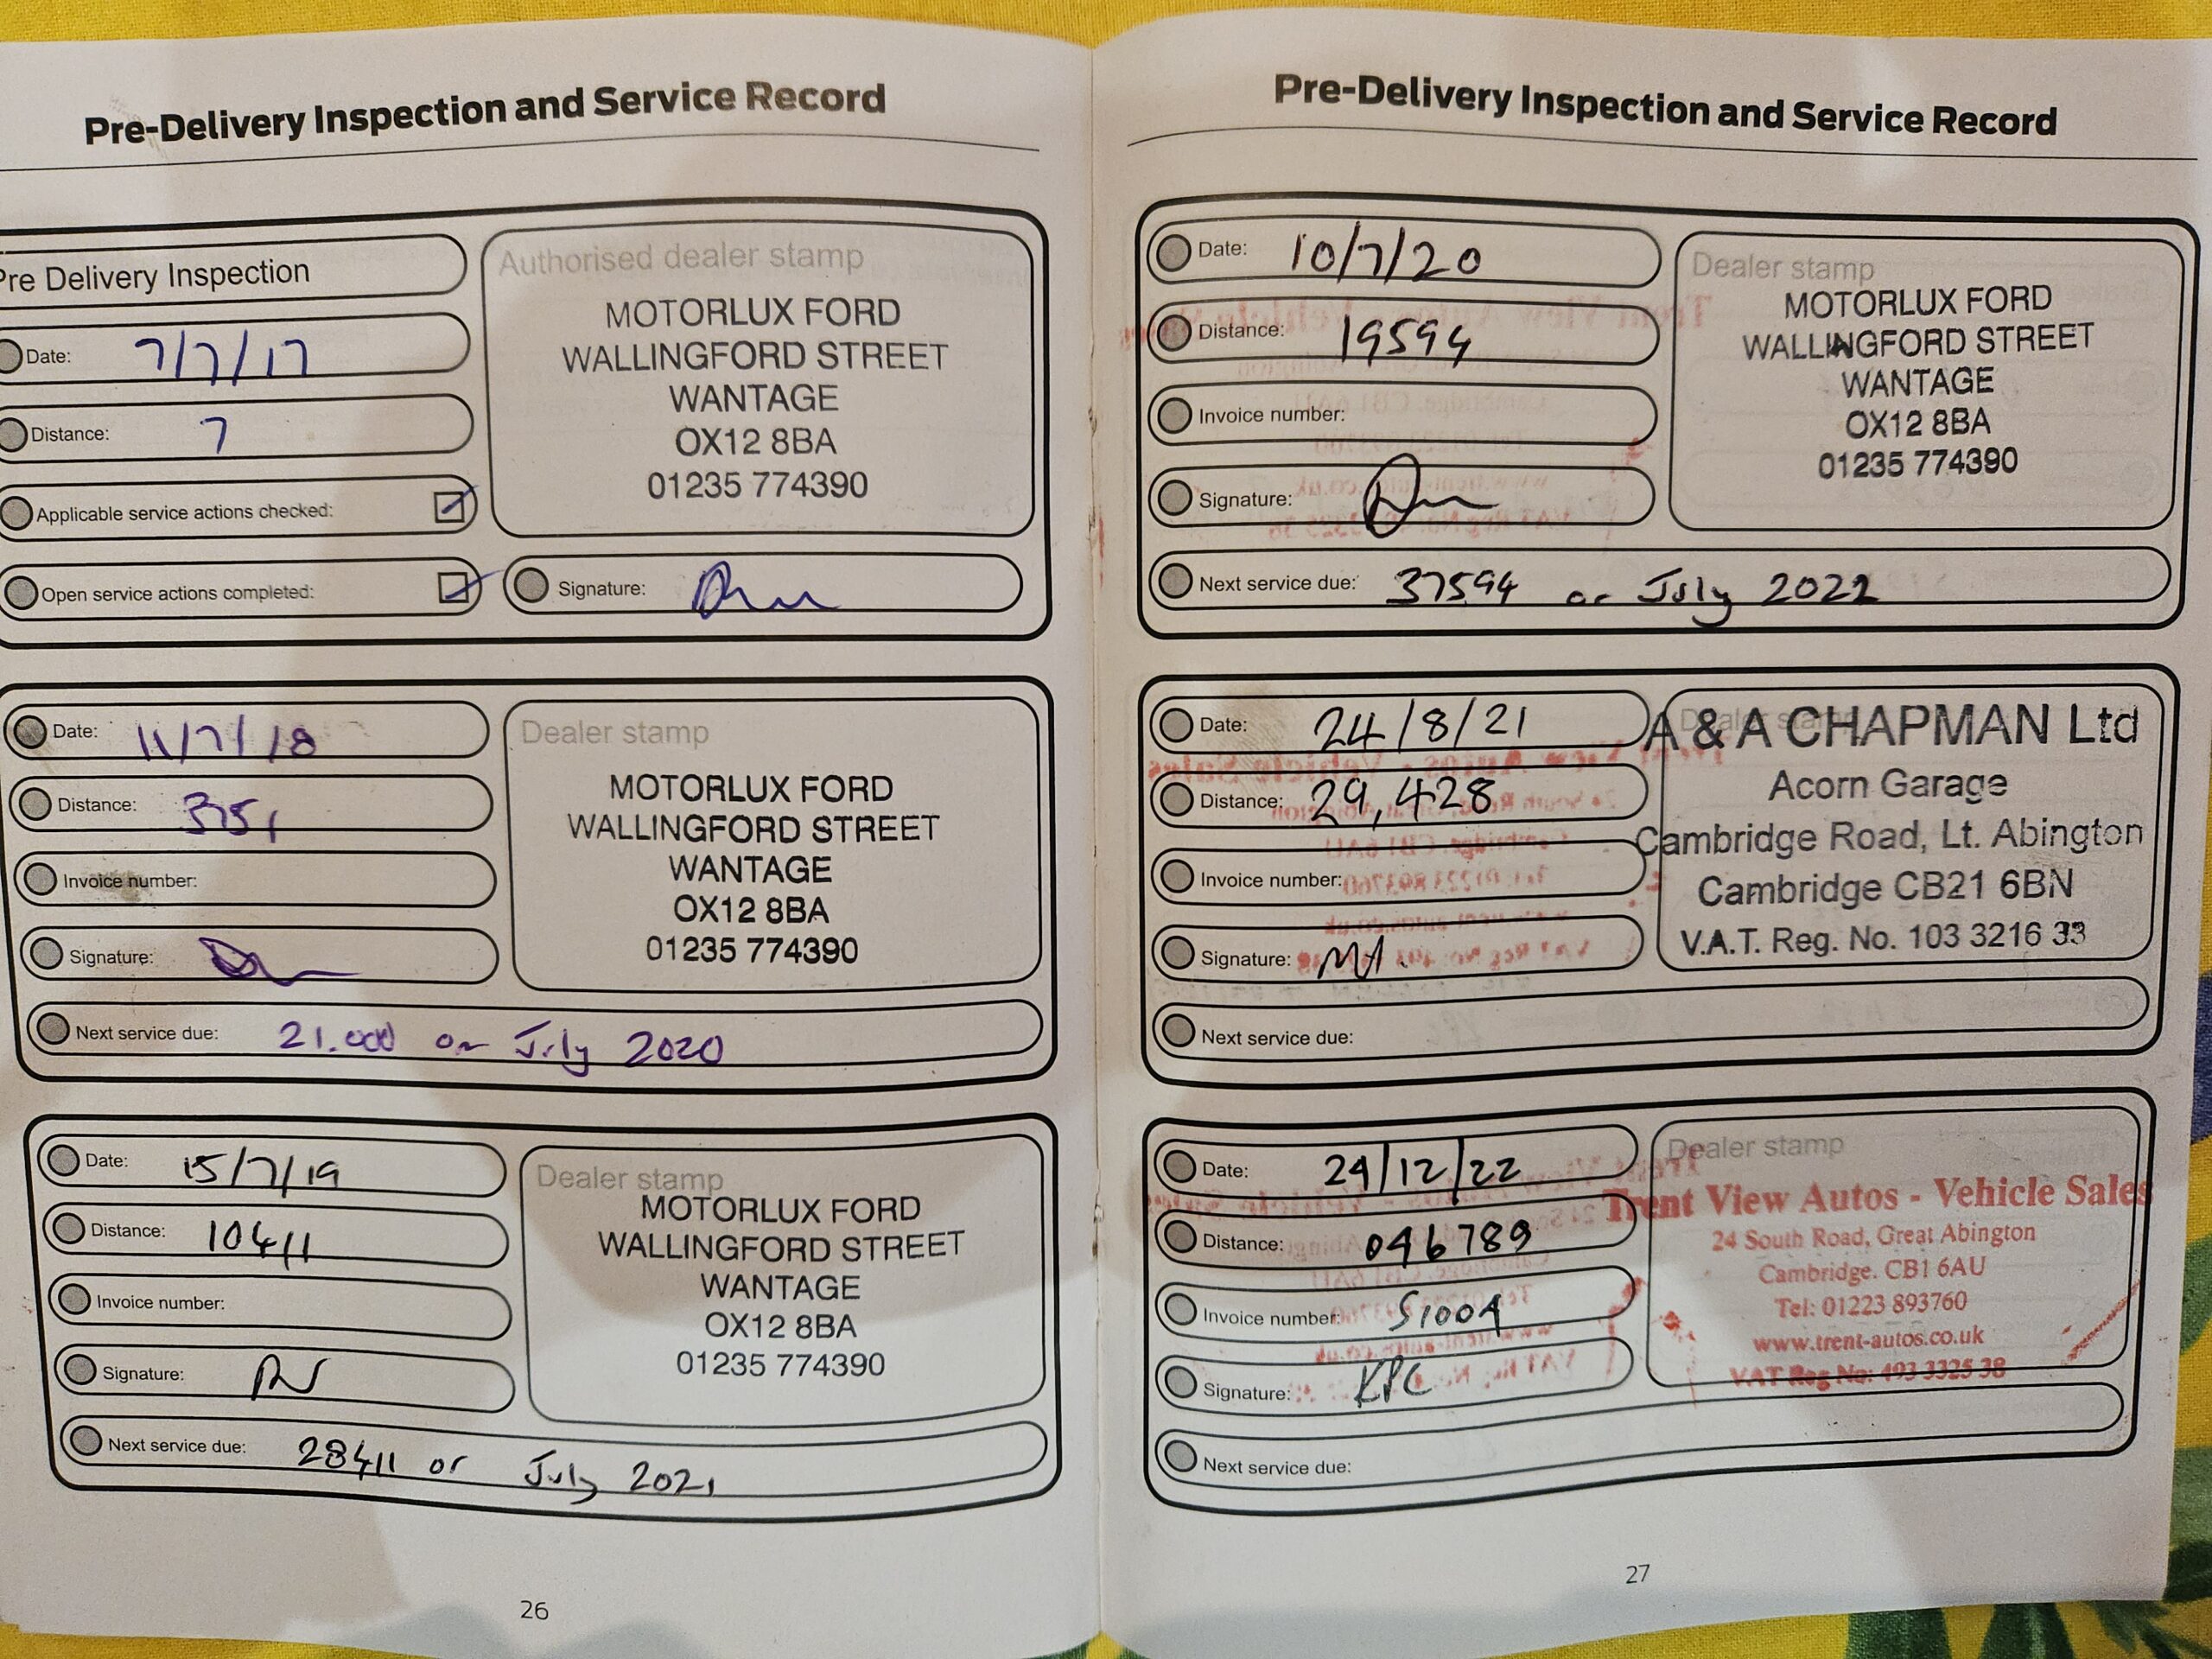 Pre-Delivery Inspection and Service Record
Pre Delivery Inspection
Date: 7/7/17
Distance: 7
Applicable service actions checked:
Open service actions completed:
Authorised dealer stamp
MOTORLUX FORD
WALLINGFORD STREET
WANTAGE
OX12 8BA
01235 774390
Signature:
Date: 11/7/18
Distance: 3751
Invoice number:
Signature:
Dealer stamp
MOTORLUX FORD
WALLINGFORD STREET
WANTAGE
OX12 8BA
01235 774390
Next service due: 21.000 or July 2020
Date: 15/7/19
Distance: 10411
Invoice number:
Signature:
Dealer stamp
MOTORLUX FORD
WALLINGFORD STREET
WANTAGE
OX12 8BA
01235 774390
Next service due: 28411 or July 2021
26
Pre-Delivery Inspection and Service Record
Date: 10/7/20
Distance: 19594
Invoice number:
Signature:
Dealer stamp
MOTORLUX FORD
WALLINGFORD STREET
WANTAGE
OX12 8BA
01235 774390
Next service due: 37594 or July 2022
Date: 24/8/21
Distance: 29,428
Invoice number:
Signature:
Dealer stamp
A & A CHAPMAN Ltd
Acorn Garage
Cambridge Road, Lt. Abington
Cambridge CB21 6BN
V.A.T. Reg. No. 103 3216 33
Next service due:
Date: 29/12/22
Distance: 046789
Invoice number: S1004
Signature: KPC
Dealer stamp
Trent View Autos - Vehicle Sales
24 South Road, Great Abington
Cambridge. CB1 6AU
Tel: 01223 893760
www.trent-autos.co.uk
VAT Reg No: 493 3325 38
Next service due:
27